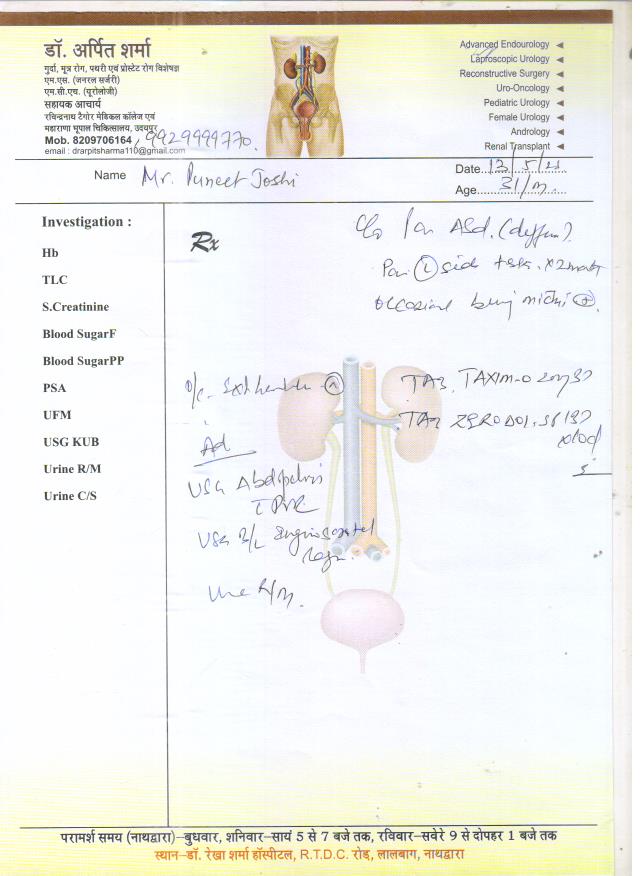 डॉ. अर्पित शर्मा
गुर्दा, मूत्र रोग, पथरी एवं प्रोस्टेट रोग विशेषज्ञ
एम.एस. (जनरल सर्जरी)
एम.सी.एच. (यूरोलोजी)
सहायक आचार्य
रविन्द्रनाथ टैगोर मेडिकल कॉलेज एवं
महाराणा भूपाल चिकित्सालय, उदयपुर
Mob. 8209706164, 9929999770.
email : drarpitsharma110@gmail.com
Advanced Endourology
Laproscopic Urology
Reconstructive Surgery
Uro-Oncology
Pediatric Urology
Female Urology
Andrology
Renal Transplant
Name Mr. Puneet Joshi
Date 12/5/21
Age 31/M.
Investigation :
Hb
TLC
S.Creatinine
Blood SugarF
Blood SugarPP
PSA
UFM
USG KUB
Urine R/M
Urine C/S
Rx
c/o Pain Abd.
Pain L side
occasional
TAB. TAXIM-O 200
TAB ZERODOL-
Ad
USG Abd pelvis
USG B/L
R/M.
परामर्श समय (नाथद्वारा)–बुधवार, शनिवार–सायं 5 से 7 बजे तक, रविवार–सवेरे 9 से दोपहर 1 बजे तक
स्थान–डॉ. रेखा शर्मा हॉस्पीटल, R.T.D.C. रोड़, लालबाग, नाथद्वारा